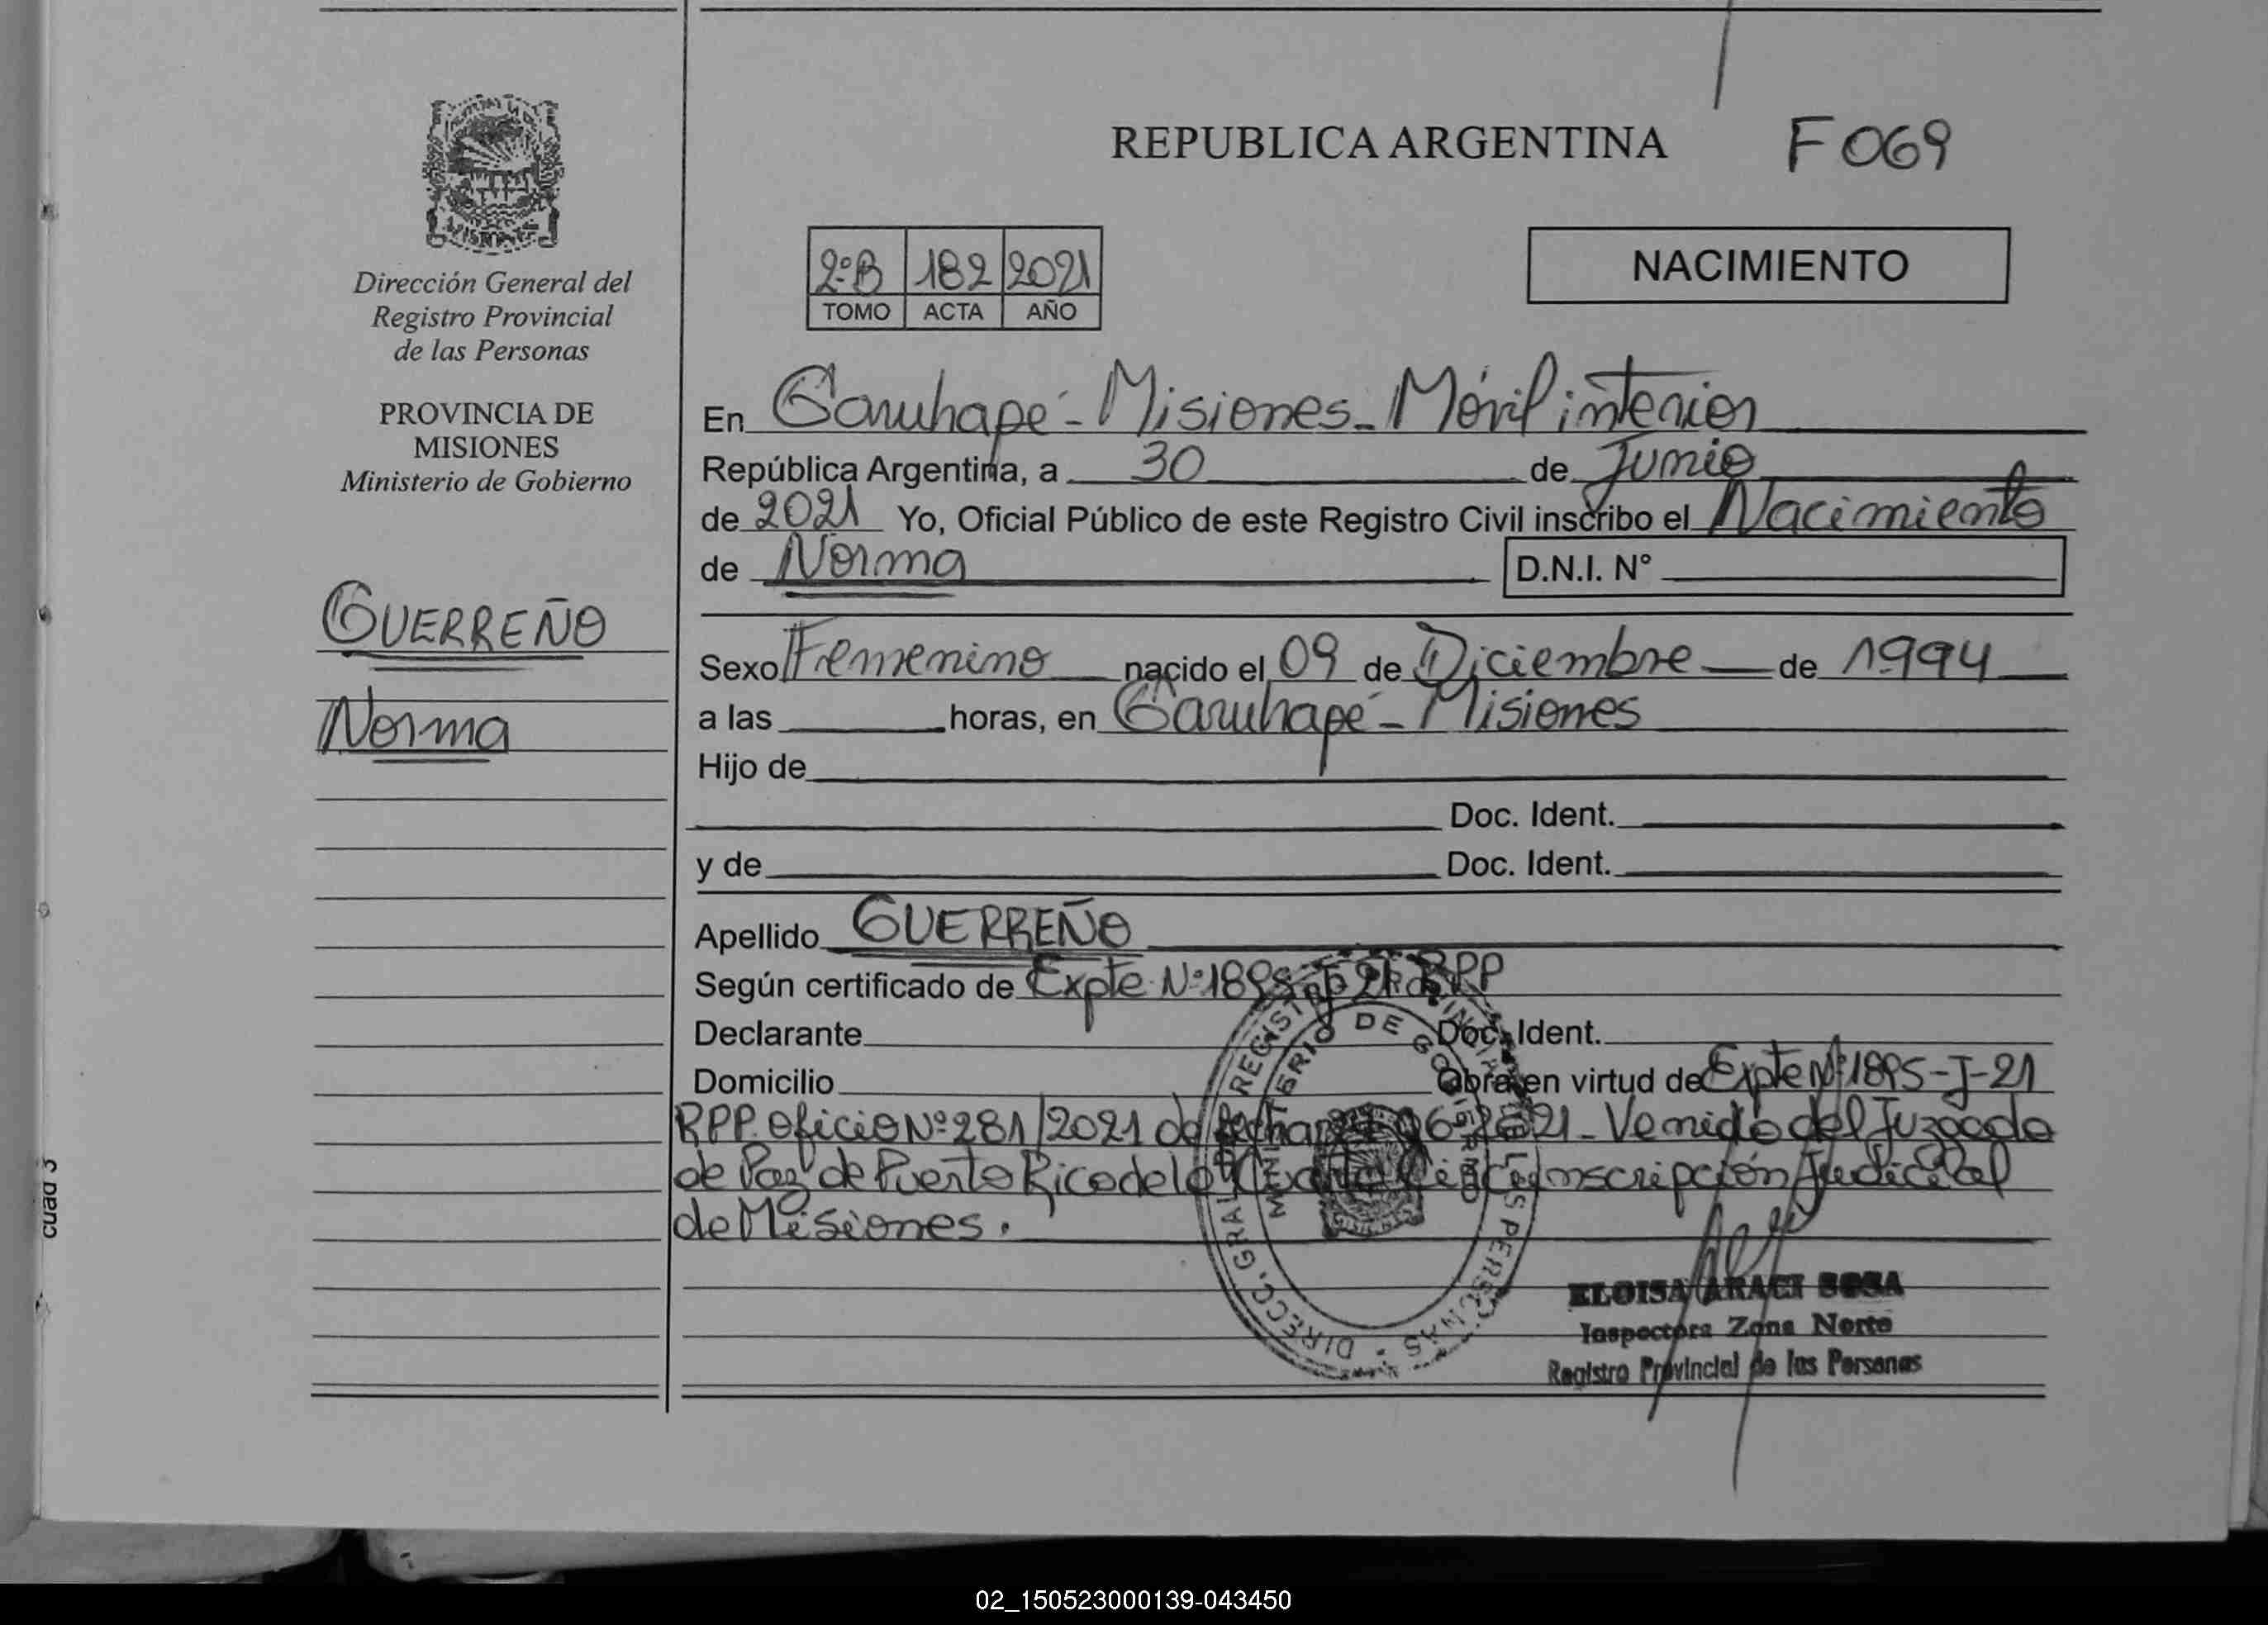 REPUBLICA ARGENTINA F 069
Dirección General del
Registro Provincial
de las Personas
PROVINCIA DE
MISIONES
Ministerio de Gobierno
GUERREÑO
Norma
2ºB 182 2021
TOMO ACTA AÑO
NACIMIENTO
En Garuhapé - Misiones - Móvil interior
República Argentina, a 30 de Junio
de 2021 Yo, Oficial Público de este Registro Civil inscribo el Nacimiento
de Norma D.N.I. N°
Sexo Femenino nacido el 09 de Diciembre de 1994
a las horas, en Garuhapé - Misiones
Hijo de
Doc. Ident.
y de Doc. Ident.
Apellido GUERREÑO
Según certificado de Expte Nº 1895-J-21 RPP
Declarante Doc. Ident.
Domicilio Obra en virtud de Expte Nº 1895-J-21
RPP. Oficio Nº 281/2021 de fecha 2021 - Venido del Juzgado
de Paz de Puerto Rico de la Cuarta Circunscripción Judicial
de Misiones.
DIRECC. GRAL. DE REGIST PROVINCIAL DE LAS PERSONAS
MINISTERIO DE GOBIERNO
ELOISA ARACI SOSA
Inspectora Zona Norte
Registro Provincial de las Personas
cuad 3
02_150523000139-043450